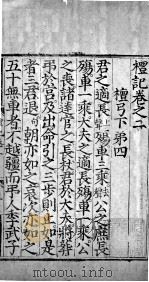 禮記卷之二
檀弓下第四
君之適長殤車三乘公之庶長
殤車一乘大夫之適長殤車一乘公
之喪諸達官之長杖君於大夫將葬
弔於宮及出命引之三步則止如是
者三君退朝亦如之哀次亦如之
五十無車者不越疆而弔人季武子
mtoou.info mtoou.info